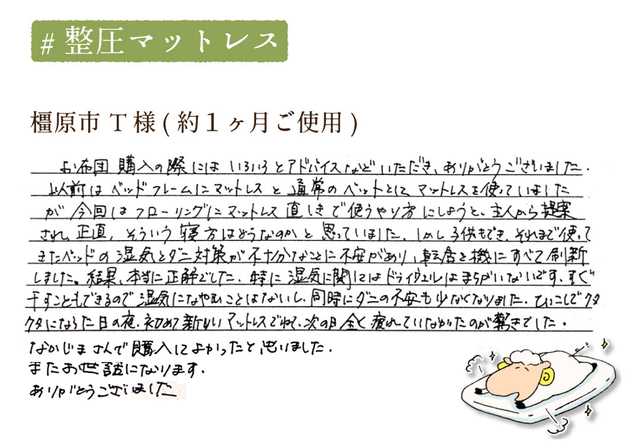 #整圧マットレス
橿原市 T 様 ( 約１ヶ月ご使用 )
お布団購入の際にはいろいろとアドバイスなどいただき、ありがとうございました。
以前はベッドフレームにマットレスと通常のベットとして、マットレスを使っていました
が今回はフローリングにマットレス直しきで使うやり方にしようと、主人から提案
され正直、そういう寝方はどうなのかと思っていました。しかし子供もでき、それまで使って
きたベッドの湿気とダニ対策が不十分なことに不安があり、転居を機にすべて刷新
しました。結果、本当に正解でした。特に湿気に関してはドライウェルはまちがいないです。すぐ
干すこともできるので湿気になやむことはないし、同時にダニの不安も少なくなりました。ひっこしでクタ
クタになろた日の夜、初めて新しいマットレスでねて、次の日全く疲れていなかったのが驚きでした。
なかじまさんで購入してよかったと思いました。
またお世話になります。
ありがとうございました